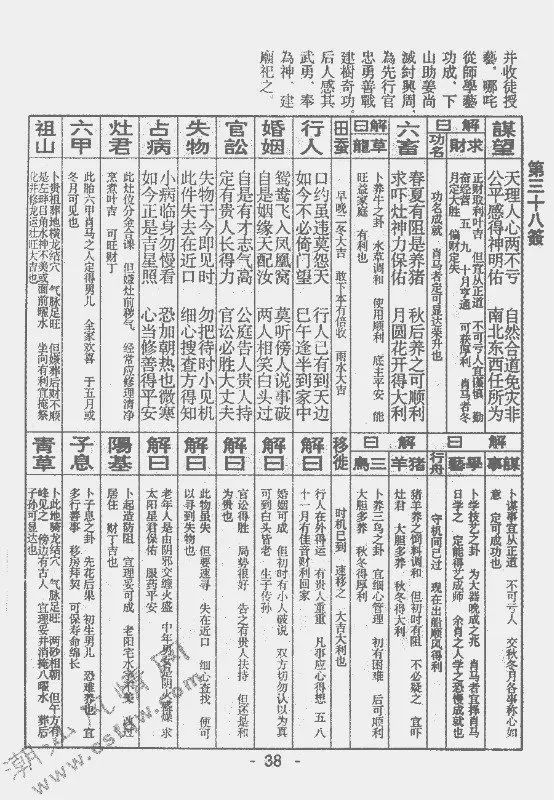 第三十八簽
并收徒授
藝。哪吒
從師學藝
功成,下
山助姜尚
滅紂興周,
為先行官
忠勇善戰
建樹奇功。
后人感其
武勇,奉
為神,建
廟祀之。
謀望
天理人心两不亏 自然合道免灾非
公平感得神明佑 南北东西任所为
解曰
求財
正财取利叶吉 但宜从正道 不可亏人宜谨慎 勤
奋经营 五 九 十月亨通 可获厚利 肖马者冬
月定大胜 偏财定失
功名
功名成就 肖马者定可显达荣升也
六畜
春夏有阻是养猪 秋后养之可顺利
求吓灶神力保佑 月圆花开得大利
解曰
草龍
卜养牛之卦 水草调和 使用顺利 底主平安 能
旺益家庭 有利也
田蚕
早晚二冬大吉 敢下本有倍收 雨水大吉
行人
口约虽违莫怨天 行人已有到天边
如今不必倚门望 巳午逢半到家中
婚姻
鸳鸯飞入凤凰窝 莫听傍人说事破
自是姻缘天配汝 两人相笑白头过
官訟
自是有才志气高 公庭告人贵人持
定有贵人长得力 官讼必胜大丈夫
失物
失物于今即见时 勿把待时小见机
此件失去在近口 细心搜查方得知
占病
小病临身勿慢看 恐加朝热也微寒
如今正是吉星照 心当修善得平安
灶君
此灶位分金合课 但嫌灶前秽气 经常应修理清净
烹煮叶吉 可旺财丁
六甲
此胎六甲肖马之人定得男儿 全家欢喜 于五月或
冬月可见也
祖山
卜贵祖葬地横龙结穴 气脉足旺 但嫌葬后财不顺
是左畔白角水神不美或面前曜水 坐向有利宜掩祭
化井修龙运壮旺大吉也
解曰
謀事
卜谋事宜从正道 不可亏人 交秋冬月各事称心如
意 定可成功也
學藝
卜学技艺之卦 为大器晚成之兆 肖马者宜择肖马
日学之 定能得艺成师 余肖之人学之恐慢成就也
行舟
守机间已过 现在出船顺风得利
解曰
猪羊
猪羊养之饲料调和 但初时有阻 不必疑之 宜吓
灶君 大胆多养 秋冬得大利
三鳥
卜养三鸟之卦 宜细心管理 初有困难 后可顺利
大胆多养 秋冬得厚利
移徙
时机已到 速移之 大吉大利也
解曰
行人在外得运 有贵人重重 凡事应心得想 五 八
十一月有佳音财利回家
解曰
婚姻可成 但初时有小人破说 双方切勿认以为真
可到白头皆老 生子传孙
解曰
官讼得胜 局势很好 告之有贵人扶持 但还是和
为贵也
解曰
此物虽失 但要速寻 失在近口 细心查找 便可
以寻到失物也
解曰
老年人是由阴邪交缠火盛 中年男女是阴火燥燥 求
太阳星君保佑 服药平安
陽基
卜起造防阻 宜理妥可成 老阳宅水
居住 财丁吉也
子息
卜子息之卦 先花后果 初生男儿 恐难养也 宜
多行善事 移房拜契 可保寿命绵长
青草
卜此地骑龙结穴 气脉足旺 两砂相朝 但午方有
峰见之 傍边有古人 宜理妥井消掩八曜水 葬后
子孙可显达也
- 38 -
www.cstxw.com